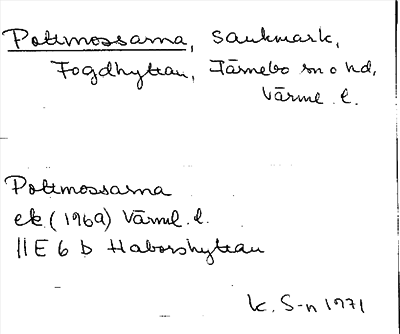 Pottmossarna, sankmark,
Fogdhyttan, Färnebo sn o hd,
Värml. l.
Pottmossarna
ek (1969) Värml. l.
11E 6 b Haborshyttan
K. S-n 1971